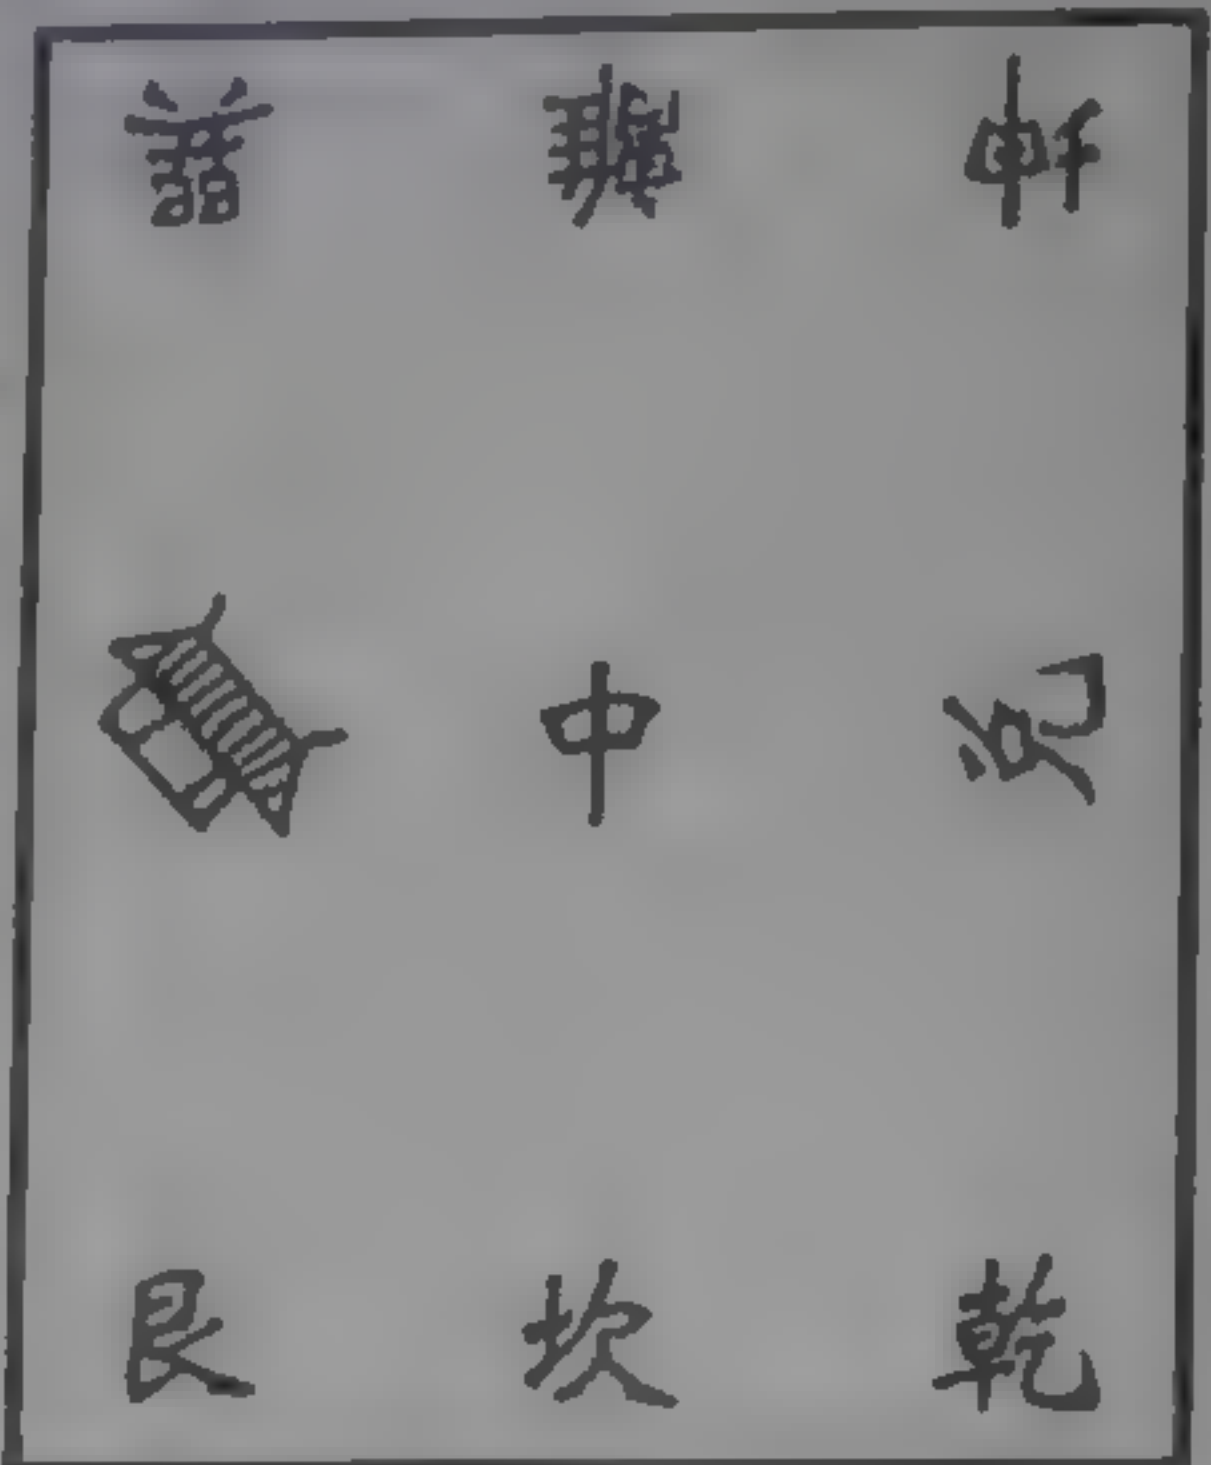 巽 離 坤
中 兌
艮 坎 乾